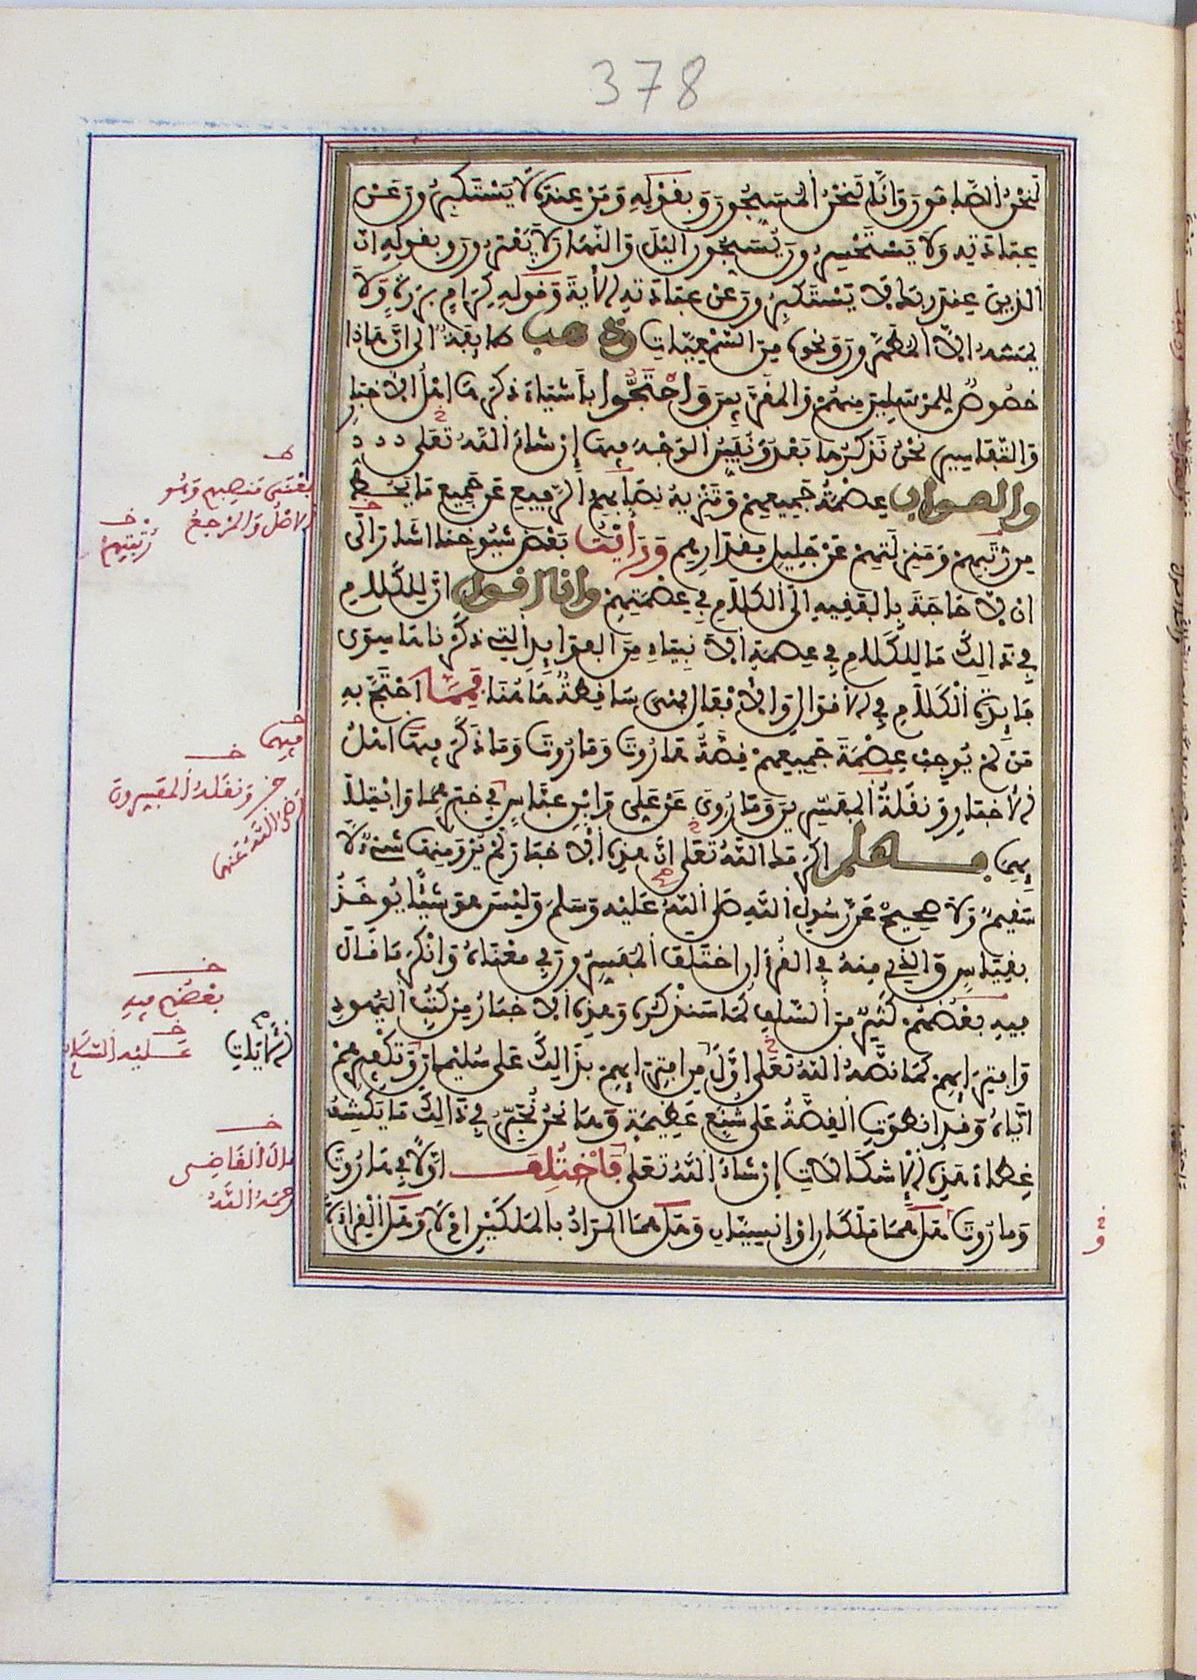 378
لَنَحْنُ الصَّافُّونَ وَإِنَّا لَنَحْنُ الْمُسَبِّحُونَ وَبِقَوْلِهِ وَمَنْ عِنْدَهُ لَا يَسْتَكْبِرُونَ عَنْ
عِبَادَتِهِ وَلَا يَسْتَحْسِرُونَ يُسَبِّحُونَ اللَّيْلَ وَالنَّهَارَ لَا يَفْتُرُونَ وَبِقَوْلِهِ إِنَّ
الذِينَ عِنْدَ رَبِّكَ لَا يَسْتَكْبِرُونَ عَنْ عِبَادَتِهِ الْآيَةَ وَقَوْلِهِ كِرَامٍ بَرَرَةٍ وَلَا
يَمَسُّهُ إِلَّا الْمُطَهَّرُونَ وَنَحْوِهِ مِنَ السَّمْعِيَّاتِ وَذَهَبَتْ طَائِفَةٌ إِلَى أَنَّ هَاذَا
خُصُوصٌ لِلْمُرْسَلِينَ مِنْهُمْ وَالْمُقَرَّبِينَ وَاحْتَجُّوا بِأَشْيَاءَ ذَكَرَهَا أَهْلُ الْأَخْبَارِ
وَالتَّفَاسِيرِ نَحْنُ نَذْكُرُهَا بَعْدُ وَنُبَيِّنُ الْوَجْهَ فِيهَا إِنْ شَاءَ اللَّهُ تَعَلَى
وَالصَّوَابُ عِصْمَةُ جَمِيعِهِمْ وَتَنْزِيهُ نِصَابِهِمُ الرَّفِيعِ عَنْ جَمِيعِ مَا يَحُطُّ
مِنْ رُتَبِهِمْ وَمَنْزِلَتِهِمْ عَنْ جَلِيلِ مِقْدَارِهِمْ وَرَأَيْتُ بَعْضَ شُيُوخِنَا أَشَارَ إِلَى
أَنْ لَا حَاجَةَ بِالْفَقِيهِ إِلَى الْكَلَامِ فِي عِصْمَتِهِمْ وَأَنَا أَقُولُ إِنَّ لِلْكَلَامِ
فِي ذَالِكَ مَا لِلْكَلَامِ فِي عِصْمَةِ الْأَنْبِيَاءِ مِنَ الْفَوَائِدِ الَّتِي ذَكَرْنَاهَا سِوَى
فَائِدَةِ الْكَلَامِ فِي الْأَقْوَالِ وَالْأَفْعَالِ فَهْيَ سَاقِطَةٌ هَاهُنَا فَمِمَّا احْتَجَّ بِهِ
مَنْ لَمْ يُوجِبْ عِصْمَةَ جَمِيعِهِمْ قِصَّةُ هَارُوتَ وَمَارُوتَ وَمَا ذَكَرَ فِيهَا أَهْلُ
الْأَخْبَارِ وَنَقَلَةُ الْمُفَسِّرِينَ وَمَا رُوِيَ عَنْ عَلِيٍّ وَابْنِ عَبَّاسٍ فِي خَبَرِهِمَا وَابْتِلَائِ
هِمَا فَاعْلَمْ أَكْرَمَكَ اللَّهُ تَعَلَى أَنَّ هَذِهِ الْأَخْبَارَ لَمْ يُرْوَ مِنْهَا شَيْءٌ لَا
سَقِيمٌ وَلَا صَحِيحٌ عَنْ رَسُولِ اللَّهِ صَلَّى اللَّهُ عَلَيْهِ وَسَلَّمَ وَلَيْسَ هُوَ شَيْئًا يُوخَذُ
بِقِيَاسٍ وَالَّذِي مِنْهُ فِي الْقُرْآنِ اخْتَلَفَ الْمُفَسِّرُونَ فِي مَعْنَاهُ وَأَنْكَرَ مَا قَالَ
فِيهِ بَعْضُهُمْ كَثِيرٌ مِنَ السَّلَفِ كَمَا سَنَذْكُرُهُ وَهَذِهِ الْأَخْبَارُ مِنْ كُتُبِ الْيَهُودِ
وَافْتِرَائِهِمْ كَمَا نَصَّهُ اللَّهُ تَعَلَى أَوَّلَ مِنِ افْتِرَائِهِمْ بِذَالِكَ عَلَى سُلَيْمَانَ وَتَكْفِيرِهِمْ
إِيَّاهُ وَقَدِ انْطَوَتِ الْقِصَّةُ عَلَى شُنَعٍ عَظِيمَةٍ وَهَا نَحْنُ نُحَبِّرُ فِي ذَالِكَ مَا يَكْشِفُ
غِطَاءَ هَذِهِ الْإِشْكَالَاتِ إِنْ شَاءَ اللَّهُ تَعَلَى فَاخْتُلِفَ أَوَّلًا فِي هَارُوتَ
وَمَارُوتَ هَلْ هُمَا مَلَكَانِ أَوْ إِنْسِيَّانِ وَهَلْ هُمَا الْمُرَادُ بِالْمَلَكَيْنِ أَمْ لَا وَهَلِ الْقِرَاءَةُ
الْأَصْلُ وَالْمَرْجِعُ
رُتْبَتِهِمْ
فِيهِمَا
خَبَرٍ وَنَقَلَهُ الْمُفَسِّرُونَ
رَضِيَ اللَّهُ عَنْهُمَا
بَعْضُهُمْ فِيهِ
الْآيَاتِ
عَلَيْهِ السَّلَامُ
قَالَ الْقَاضِي
رَحِمَهُ اللَّهُ